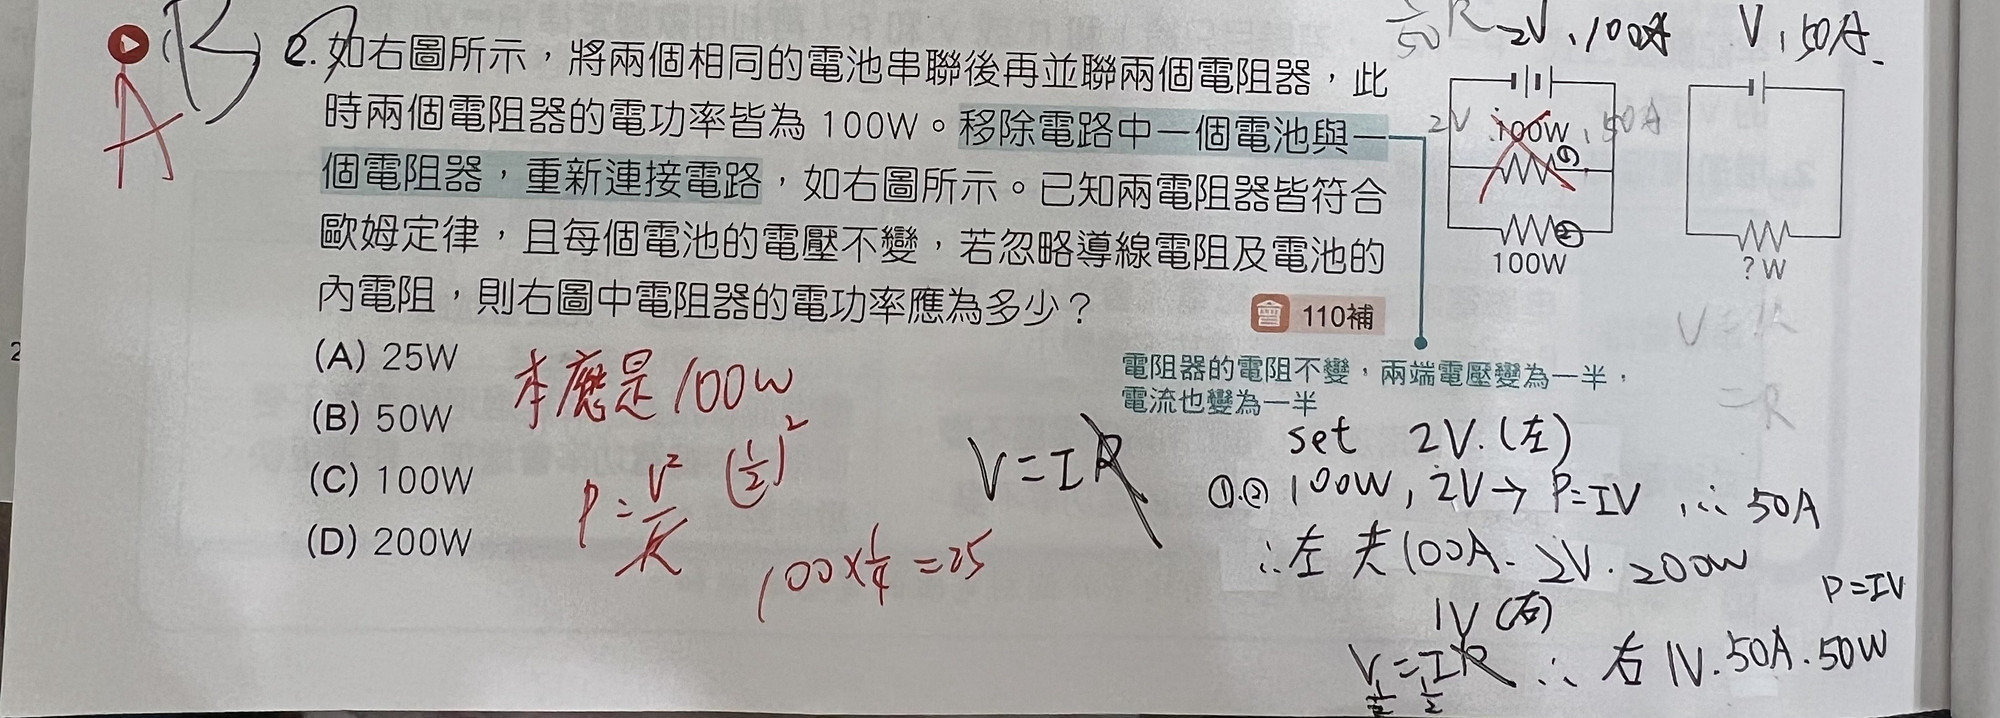 1/50 R 2V , 100A V , 50A
A B 2. 如右圖所示，將兩個相同的電池串聯後再並聯兩個電阻器，此
時兩個電阻器的電功率皆為 100W。移除電路中一個電池與一
個電阻器，重新連接電路，如右圖所示。已知兩電阻器皆符合
歐姆定律，且每個電池的電壓不變，若忽略導線電阻及電池的
內電阻，則右圖中電阻器的電功率應為多少？
110補
2V 100W , 50A
①
②
100W
?W
V = IR
= R
(A) 25W
(B) 50W
(C) 100W
(D) 200W
本應是100W
P = V²/R (1/2)²
100×1/4=25
V=IR
電阻器的電阻不變，兩端電壓變為一半，
電流也變為一半
set 2V.(左)
①.② 100W , 2V → P=IV , ∴ 50A
∴左 夫100A. 2V. 200W
P=IV
1V (右)
V 1/2 = I 1/2 R ∴ 右 1V. 50A. 50W